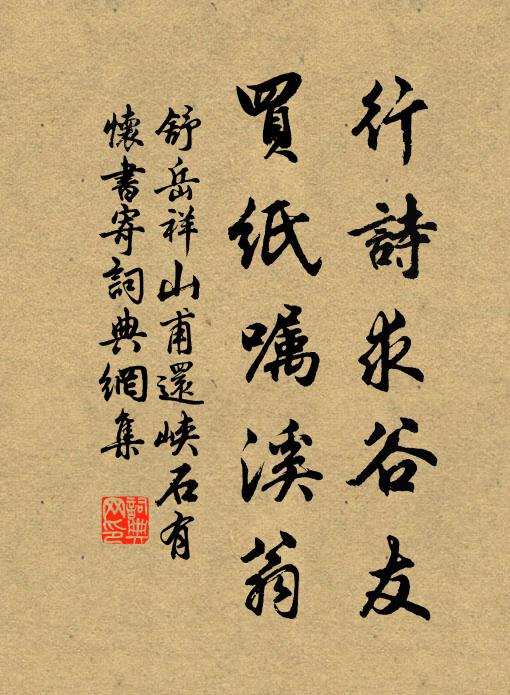 行詩求谷友
買紙嘱溪翁
舒岳祥山甫還峡石有
懷書寄詞典網集
詞典网印